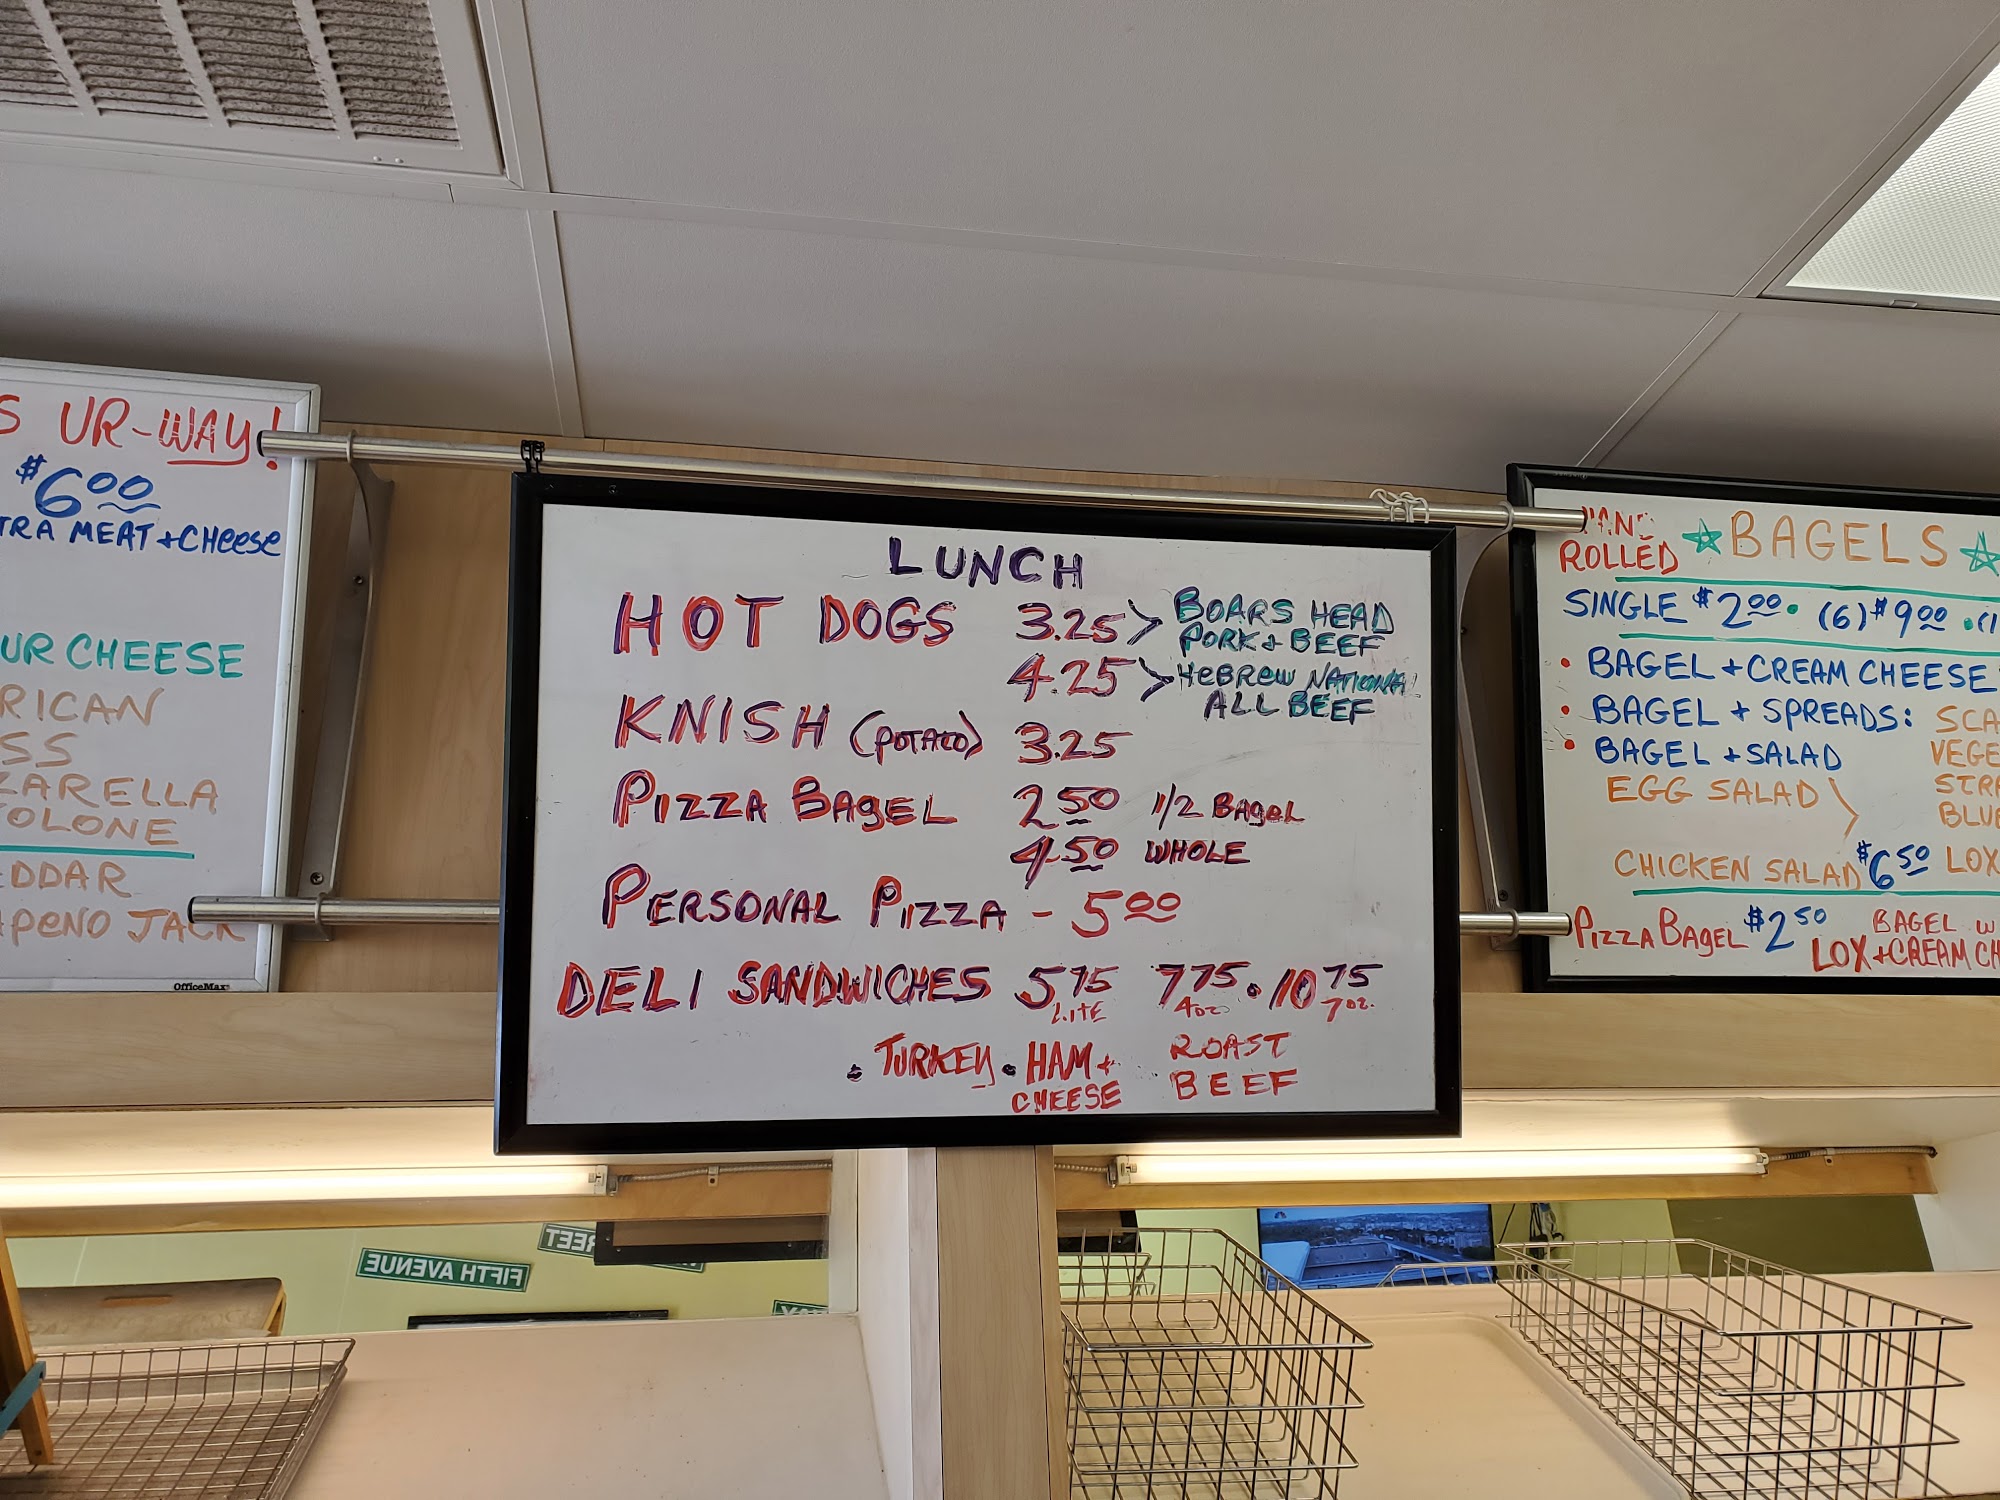 UR-WAY!
$6.00
MEAT + CHeese
CHEESE
JACK
OfficeMax
LUNCH
HOT DOGS 3.25 > BOARS HEAD
PORK + BEEF
4.25 > HeBREW NATIONAL
ALL BEEF
KNISH (POTATO) 3.25
PIZZA BAgEL 2.50 1/2 BAgeL
4.50 WHOLE
PERSONAL PIZZA - 5.00
DELI SANDWICHES 5.75 7.75 • 10.75
LITE 4oz 7oz.
• TURKEY • HAM + CHEESE ROAST BEEF
ROLLED ☆ BAGELS ☆
SINGLE $2.00 • (6) $9.00 •
• BAGEL + CREAM CHEESE
• BAGEL + SPREADS:
• BAGEL + SALAD
EGG SALAD
CHICKEN SALAD $6.50 LOX
PIZZA BAgEL $2.50 BAGEL
LOX + CREAM
FIFTH AVENUE